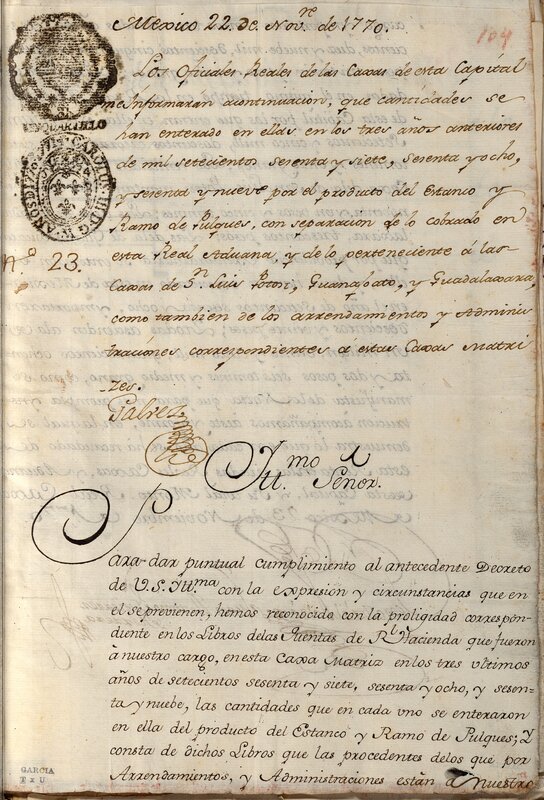 104
Mexico 22 de Nov.re de 1770.
Los Oficiales Reales de las Caxas de esta Capital
me Informaran acontinuacion, que cantidades se
han enterado en ellas en los tres años anteriores
de mil setecientos sesenta y siete, sesenta y ocho,
y sesenta y nueve por el producto del Estanco y
Ramo de Pulques, con separacion de lo cobrado en
esta Real Aduana, y de lo perteneciente á las
Caxas de Sn. Luis Potosi, Guanaxato, y Guadalaxara,
como tambien de los arrendamientos y Adminis
traciones correspondientes á estas Caxas Matri
zes.
Galvez
N.o 23.
Yll.mo Señor.
Para dar puntual cumplimiento al antecedente Decreto
de V.S. Yll.ma con la expresión y circunstancias que en
el se previenen, hemos reconocido con la proligidad correspon-
diente en los Libros delas Quentas de Rl. Hacienda que fueron
á nuestro cargo, en esta Caxa Matriz en los tres ultimos
años de setecientos sesenta y siete, sesenta y ocho, y sesen-
ta y nuebe, las cantidades que en cada vno se enteraron
en ella del producto del Estanco y Ramo de Pulques; Y
consta de dichos Libros que las procedentes delos que por
Arrendamientos, y Administraciones están a nuestro
GARCIA
TxU